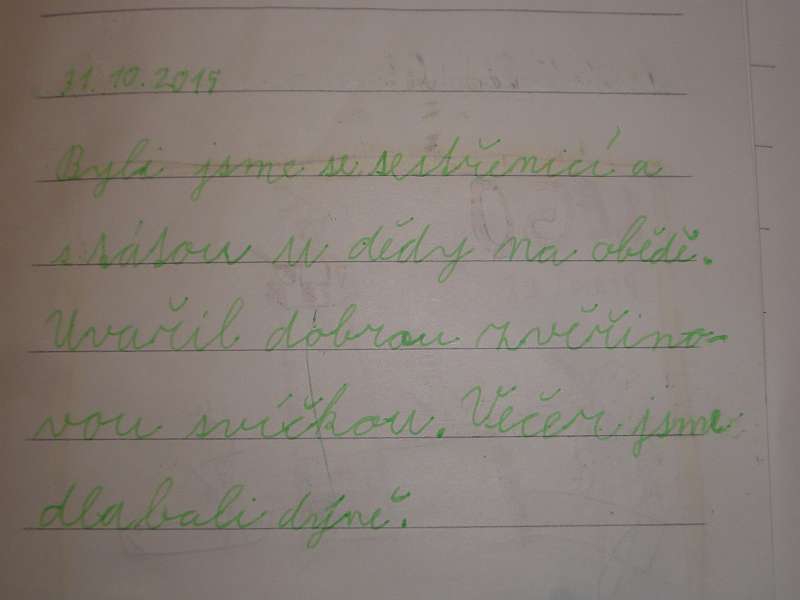 31.10.2015
Byli jsme se sestřenicí a
s tátou u dědy na obědě.
Uvařil dobrou zvěřino-
vou svíčkou. Večer jsme
dlabali dýně.